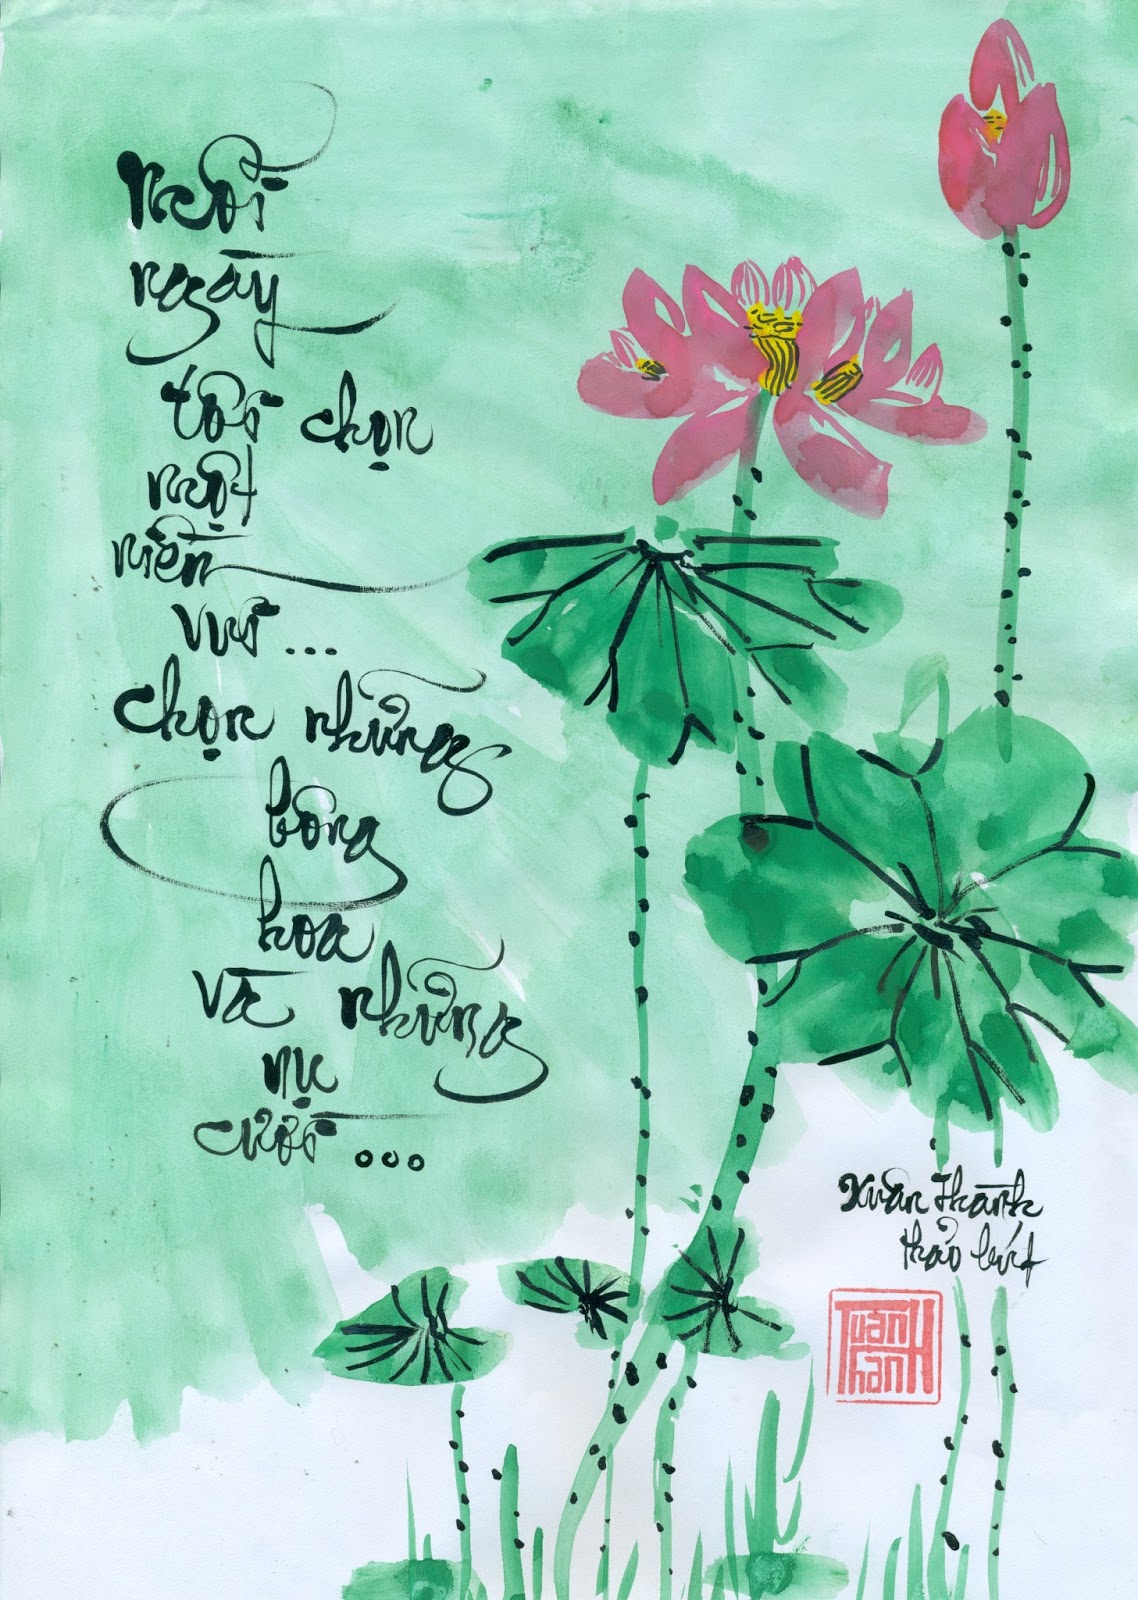 Mỗi
ngày
tôi chọn
một
niềm
vui...
chọn những
bông
hoa
và những
nụ
cười...
Xuân Thành
thảo bút